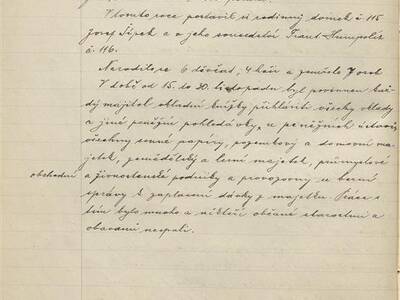 V tomto roce postavil si rodinný domek č 115
Josef Šípek a o jeho sousedství Frant. Humpolíř
č. 116.
Narodilo se 6 děvčat, 4 hoši a zemřelo 7 osob
V době od 15. do 30. listopadu byl povinen kaž-
dý majitel vkladní knížky přihlásit všechny vklady
a jiné peněžní pohledávky u peněžních ústavů
všechny cenné papíry, pozemkový a domovní ma-
jetek, zemědělský a lesní majetek, průmyslové
obchodní a živnostenské podniky a provozovny u berní
správy k zaplacení dávky z majetku. Práce s
tím bylo mnoho a někteří občané starostmi a
obavami nespali.